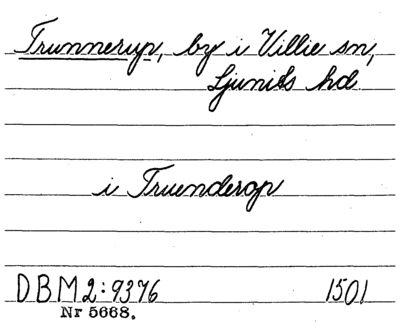 Trunnerup, by i Villie sn,
Ljunits hd
i Truenderop
DBM 2:9376 1501
Nr 5668.